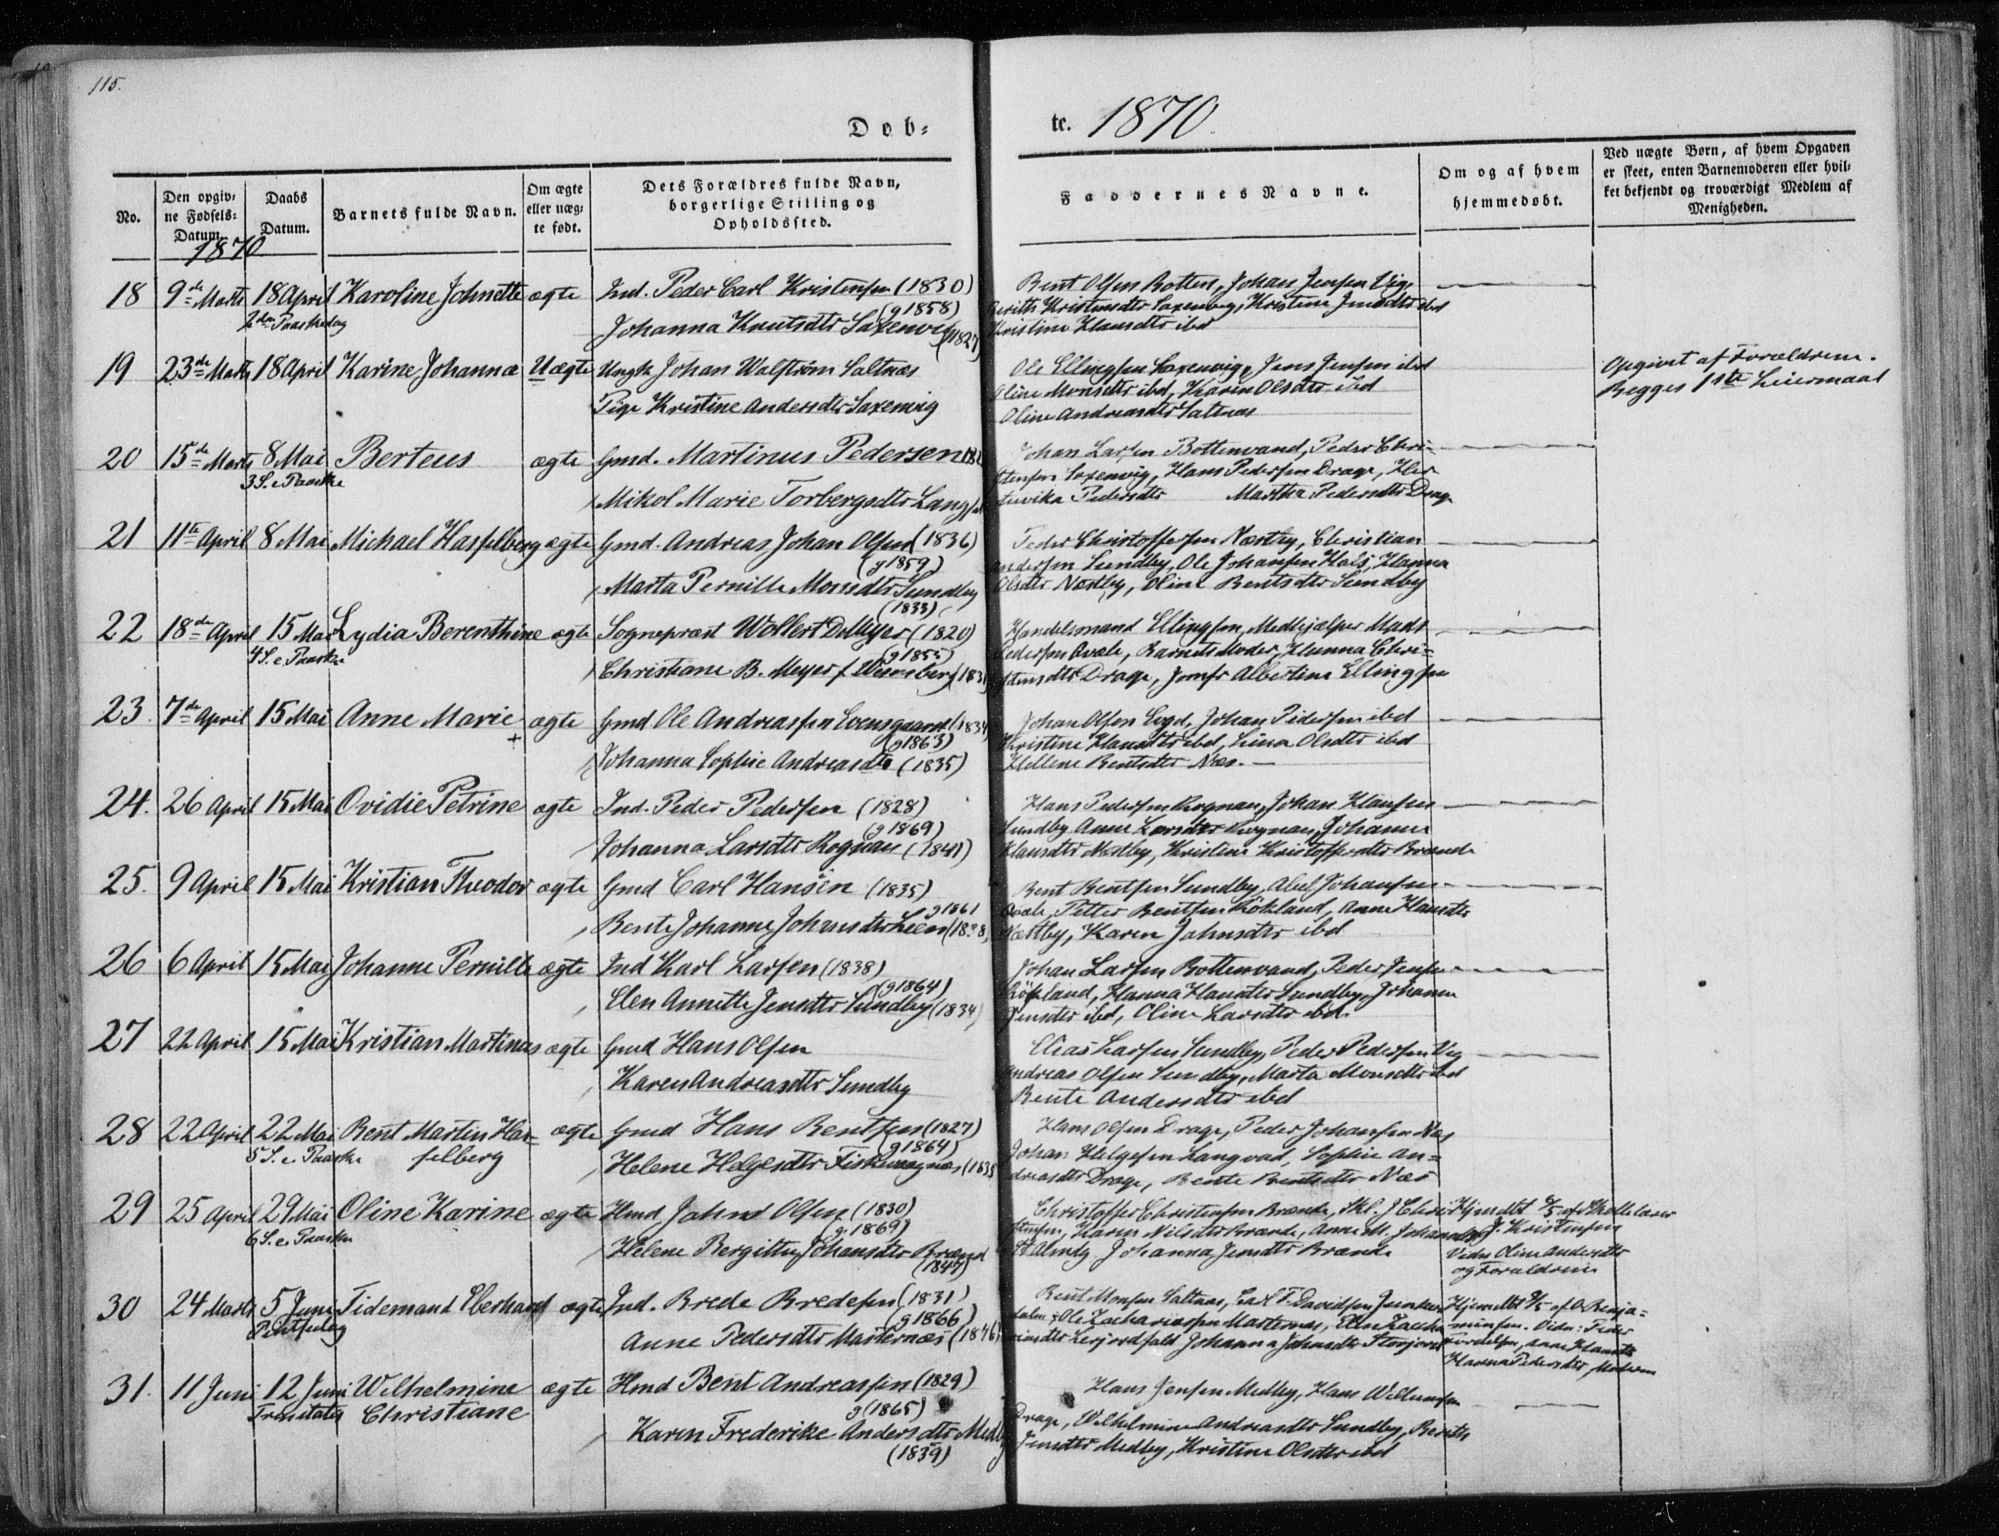 115.
Døb=
te. 1870.
No.
Den opgiv=
ne Fødsels=
Datum.
1870
Daabs
Datum.
Barnets fulde Navn.
Om ægte
eller uæg=
te født.
Dets Forældres fulde Navn,
borgerlige Stilling og
Opholdssted.
Faddernes Navne.
Om og af hvem
hjemmedøbt.
Ved uægte Børn, af hvem Opgaven
er skeet, enten Barnemoderen eller hvil=
ket bekjendt og troværdigt Medlem af
Menigheden.
18 9de Marts 18 April Karoline Johnette ægte Ind. Peder Carl Kristensen (1830)
2den Paaskedag
(g 1858)
Johanna Knutsdtr Saxenvig (1827)
Bent Olsen Botten, Johan Jensen Vig,
Berith Kristensdtr Saxenvig, Kristine Jensdtr ibd
Kristine Hansdtr ibd
19 23de Marts 18 April Karine Johanna Uægte Ungk. Johan Walstrøm Saltnæs
Pige Kristine Andersdtr Saxenvig
Ole Ellingsen Saxenvig, Jens Jensen ibd
Oline Monsdtr ibd, Karen Olsdtr ibd
Oline Andreasdtr Saltnæs
Opgivet af Forældrene.
Begges 1ste Leiermaal
20 15de Marts 8 Mai Berteus ægte Gmd. Martinus Pedersen
3 S. e Paaske
Mikol Marie Torbergsdtr
Johan Larsen Bottenvand, Peder Chri=
stensen Saxenvig, Hans Pedersen Drage,
Pedersdtr Martha Pedersdtr Drage
21 11te April 8 Mai Michael Hasselberg ægte Gmd. Andreas Johan Olsen (1836)
(g 1859)
Marta Pernille Monsdtr Sundby
(1833)
Peder Christoffersen Næstby, Christian
Andersen Sundby, Ole Johansen Hals, Hanna
Olsdtr Næstby, Oline Bentsdtr Sundby
22 18de April 15 Mai Lydia Berenthine ægte Sognepræst Wollert D. Meyer (1820)
4 S. e Paaske
(g 1855)
Christiane B. Meyer f.
Handelsmand Ellingsen, Medhjælper Mads
Pedersen Qvæle, Barnets Moder, Hanna Chri=
stensdtr Drage, Jomfr Albertine Ellingsen
23. 7de April 15 Mai Anne Marie + ægte Gmd Ole Andreassen Evensgaard (1834)
(g 1863)
Johanna Sophie Andreasdtr (1835)
Johan Olsen, Johan Pedersen ibd
Kristine Hansdtr ibd, Lina Olsdtr ibd
Hellene Bentsdtr Næs.
24. 26 April 15 Mai Ovidie Petrine ægte Ind. Peder Pedersen (1828)
(g 1869)
Johanna Larsdtr Rognan (1841)
Hans Pedersen Rognan, Johan Hansen
Sundby Anne Larsdtr Rognan, Johanne
Hansdtr Næstby, Kristine Kristoffersdtr Brænde
25. 9 April 15 Mai Kristian Theodor ægte Gmd Carl Hansen (1835)
g 1861
Bente Johanne Johansdtr Leer
Bent Bentsen Sundby, Abel Johansen
Qvæle, Petter Bentsen Røkland, Anne Hansdtr
Næstby, Karen Johnsdtr ibd
26 6 April 15 Mai Johanne Pernille ægte Ind Karl Larsen (1838)
(g 1864)
Elen Annette Jensdtr Sundby (1834)
Johan Larsen Bottenvand, Peder Jensen
Røkland, Hanna Hansdtr Sundby, Johanna
Jensdtr ibd, Oline Larsdtr ibd.
27 22 April 15 Mai Kristian Martinus ægte Gmd Hans Olsen
Karen Andreasdtr Sundby
Elias Larsen Sundby, Peder Pedersen Vig
Andreas Olsen Sundby, Marta Monsdtr ibd
Bente Andersdtr ibd
28 22 April 22 Mai Bent Martin Has= ægte Gmd Hans Bentsen (1827)
5 S. e Paaske selberg
(g 1864)
Helene Helgesdtr Fiskvaagnæs (1835
Hans Olsen Drage, Peder Johansen Næs
Johan Helgesen Langvad, Sophie An=
dreasdtr Drage, Bente Bentsdtr Næs
29 25 April 29 Mai Oline Karine ægte Hmd John Olsen (1830)
6 S. e. Paaske
(g. 1869)
Helene Bergitte Johansdtr Brænd
(1847)
Christoffer Christensen Brænde, Skl. J Chri
stensen, Karen Nilsdtr Brænde, Anne M. Johansdtr
Johanna Jensdtr Brænde
Hjemdbt af Skolelærer
J. Kristensen
Vidn Oline Andersdtr
og Forældrene
30 24 Marts 5 Juni Tidemand Eberhard ægte Ind. Brede Bredesen (1831)
Pintsedag
(g 1866)
Anne Pedersdtr Marternæs (1846)
Bent Monsen Saltnæs, Carl F. Davidsen Junker
dalen, Ole Zachariassen Marternæs, Elen Zacha
riasdtr, Johanna Johnsdtr Storjord
Hjemdbt af O. Benja=
minsen. Vidn: Peder
Hanna Pedersdtr, Moderen
31. 11 Juni 12 Juni Wilhelmine ægte Hmd Bent Andreassen (1829)
Trinitatis Christiane
g (1865)
Karen Frederike Andersdtr Medby
(1839)
Hans Jensen Medby, Hans Willumsen
Drage, Wilhelmine Andreasdtr Sundby, Bente
Jensdtr Medby, Kristine Olsdtr ibd